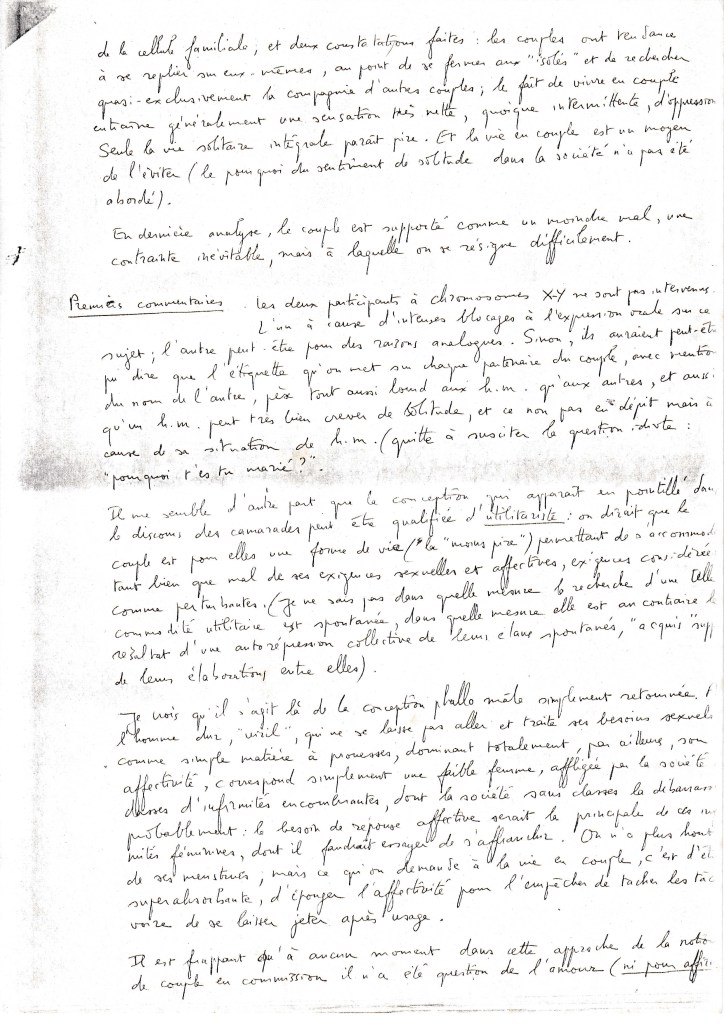 de la cellule familiale, et deux constatations faites : les couples ont tendance
à se replier sur eux-mêmes, au point de se fermer aux "isolés" et de rechercher
quasi-exclusivement la compagnie d'autres couples ; le fait de vivre en couple
entraîne généralement une sensation très nette, quoique intermittente, d'oppression
Seule la vie solitaire intégrale paraît pire. Et la vie en couple est un moyen
de l'éviter (le pourquoi du sentiment de solitude dans la société n'a pas été
abordé).
En dernière analyse, le couple est supporté comme un moindre mal, une
contrainte inévitable, mais à laquelle on se résigne difficilement.
Premiers commentaires . Les deux participants à chromosomes X-Y ne sont pas intervenus.
L'un à cause d'intenses blocages à l'expression orale sur ce
sujet ; l'autre peut-être pour des raisons analogues. Sinon, ils auraient peut-êt
pu dire que l'étiquette qu'on met sur chaque partenaire du couple, avec mention
du nom de l'autre, pèse tout aussi lourd aux h.m. qu'aux autres, et aussi
qu'un h.m. peut très bien crever de solitude, et ce non pas en dépit mais à
cause de sa situation de h.m. (quitte à susciter la question idiote :
"pourquoi t'es tu marié ?".
Il me semble d'autre part que la conception qui apparaît en pointillé dans
le discours des camarades peut être qualifiée d'utilitariste : on dirait que le
couple est pour elles une forme de vie (la "moins pire") permettant de s'accommod
tant bien que mal de ses exigences sexuelles et affectives, exigences considérée
comme perturbantes. (Je ne sais pas dans quelle mesure la recherche d'une telle
commodité utilitaire est spontanée, dans quelle mesure elle est au contraire le
résultat d'une autorépression collective de leurs élans spontanés, "acquis" supp
de leurs élaborations entre elles).
Je crois qu'il s'agit là de la conception phallo mâle simplement retournée. A
l'homme dur, "viril", qui ne se laisse pas aller et traite ses besoins sexuels
comme simple matière à prouesses, dominant totalement, par ailleurs, son
affectivité, correspond simplement une faible femme, affligée par la société
de classes d'infirmités encombrantes, dont la société sans classes la débarrass
probablement : le besoin de réponse affective serait la principale de ces in
mités féminines, dont il faudrait essayer de s'affranchir. On n'a plus hont
de ses menstrues ; mais ce qu'on demande à la vie en couple, c'est d'êt
superabsorbante, d'éponger l'affectivité pour l'empêcher de tacher les tâc
voire de se laisser jeter après usage.
Il est frappant qu'à aucun moment dans cette approche de la notio
de couple en commission il n'a été question de l'amour (ni pour affir